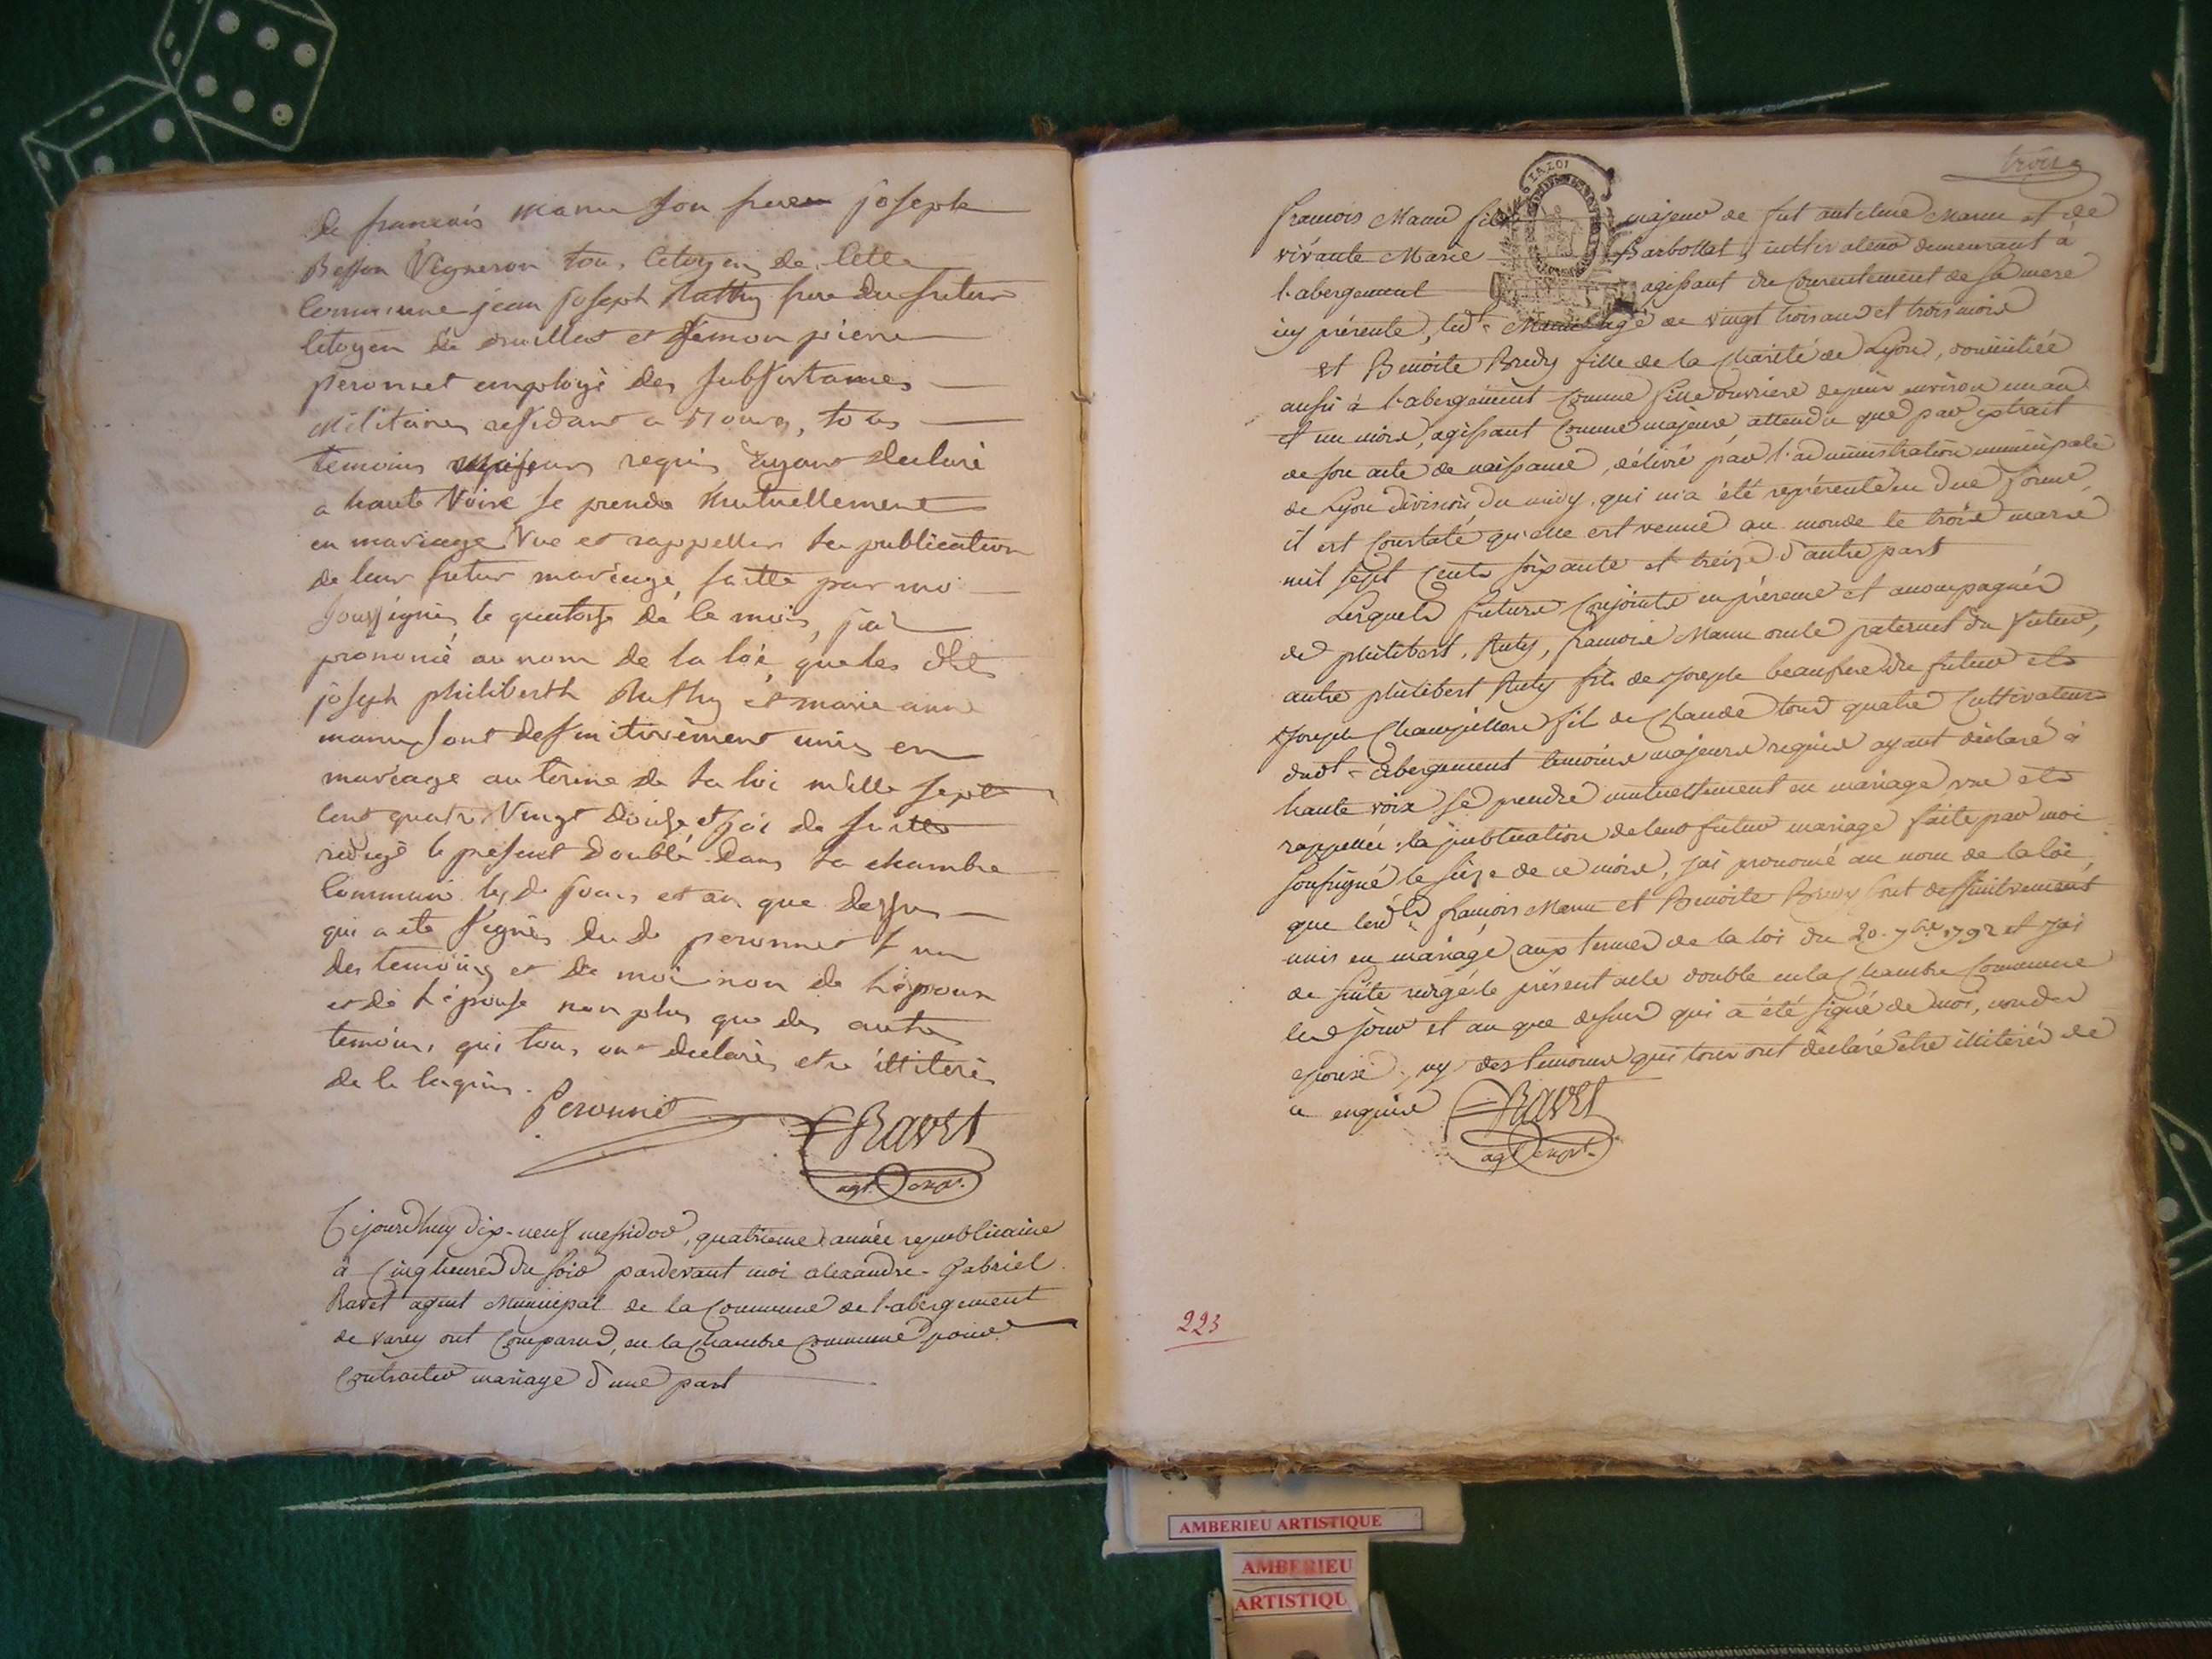 de francois manu son frere joseph
Besson Vigneron tous Citoyens de Cette
Commune jean joseph Ruthy frere du futur
Citoyen de druillet et Simon pierre
peronnet employé des subsistances
Militaires residant a Bourg, tous
temoins majeurs requis Eyant declaré
a haute Voix se prendre Mutuellement
en mariage Vue et rappeller la publication
de leur futur mariage, faitte par moi
soussignés le quatorze de ce mois, j'ai
prononcé au nom de la loi que les dits
joseph philiberth Ruthy et marie anne
manu sont deffinitivement unis en
mariage au terme de la loi mille sept
cent quatre Vingt douze et j'ai de suitte
redigé le present doublé dans la chambre
Commune les d. jours et an que dessus
qui a été signés du d. peronnet l'un
des temoins et de moi non de l'époux
et de l'épouse non plus que des autres
temoins, qui tous ont declarés etre illiterés
de ce enquis.
Peronnet
Ravet
agt.
Cejourdhuy dix-neuf messidor, quatrieme année republicaine
à Cinq heures du soir pardevant moi alexandre-Gabriel
Ravet agent Municipal de la Commune de l'abergement
de varey ont Comparus, en la Chambre Commune pour
Contracter mariage d'une part
trois
LA LOI
francois Manu fils majeur de fut antelme Manu et de
vivante Marie Barbollat, cultivateur demeurant à
l'abergement agissant du Consentement de sa mere
icy présente, led.t Manu agé de vingt trois ans et trois mois
et Benoite Bredy fille de la Charité de Lyon, domiciliée
aussi à l'abergement Comme fille ouvriere depuis environ un an
et un mois, agissant Comme majeure, attendu que par extrait
de son acte de naissance, délivré par l'administration municipale
de Lyon division du midy qui m'a été représenté en due forme,
il est Constaté qu'elle est venue au monde le trois mars
mil sept Cents soixante et treize d'autre part
Lesquels futurs Conjoints en présence et accompagnés
de philibert Ruty, francois Manu oncle paternel du futur,
autre philibert Ruty fils de Joseph beaufrere du futur et
Joseph Champillon fils de Claude tous quatre Cultivateurs
dud.t abergement temoins majeurs requis ayant déclaré à
haute voix se prendre mutuellement en mariage, vue et
rappellée la publication de leur futur mariage faite par moi
soussigné le seize de ce mois, j'ai prononcé au nom de la loi,
que lesd. françois Manu et Benoite Bredy sont deffinitivement
unis en mariage aux termes de la loi du 20. 7bre 1792 et j'ai
de suite redigé le présent acte double en la Chambre Commune
les d. jour et an que dessus qui a été signé de moi, non des
epouse, ny des temoins qui tous ont déclaré etre illiterés de
ce enquis
Ravet
agt
223
AMBERIEU ARTISTIQUE
AMBERIEU
ARTISTIQU